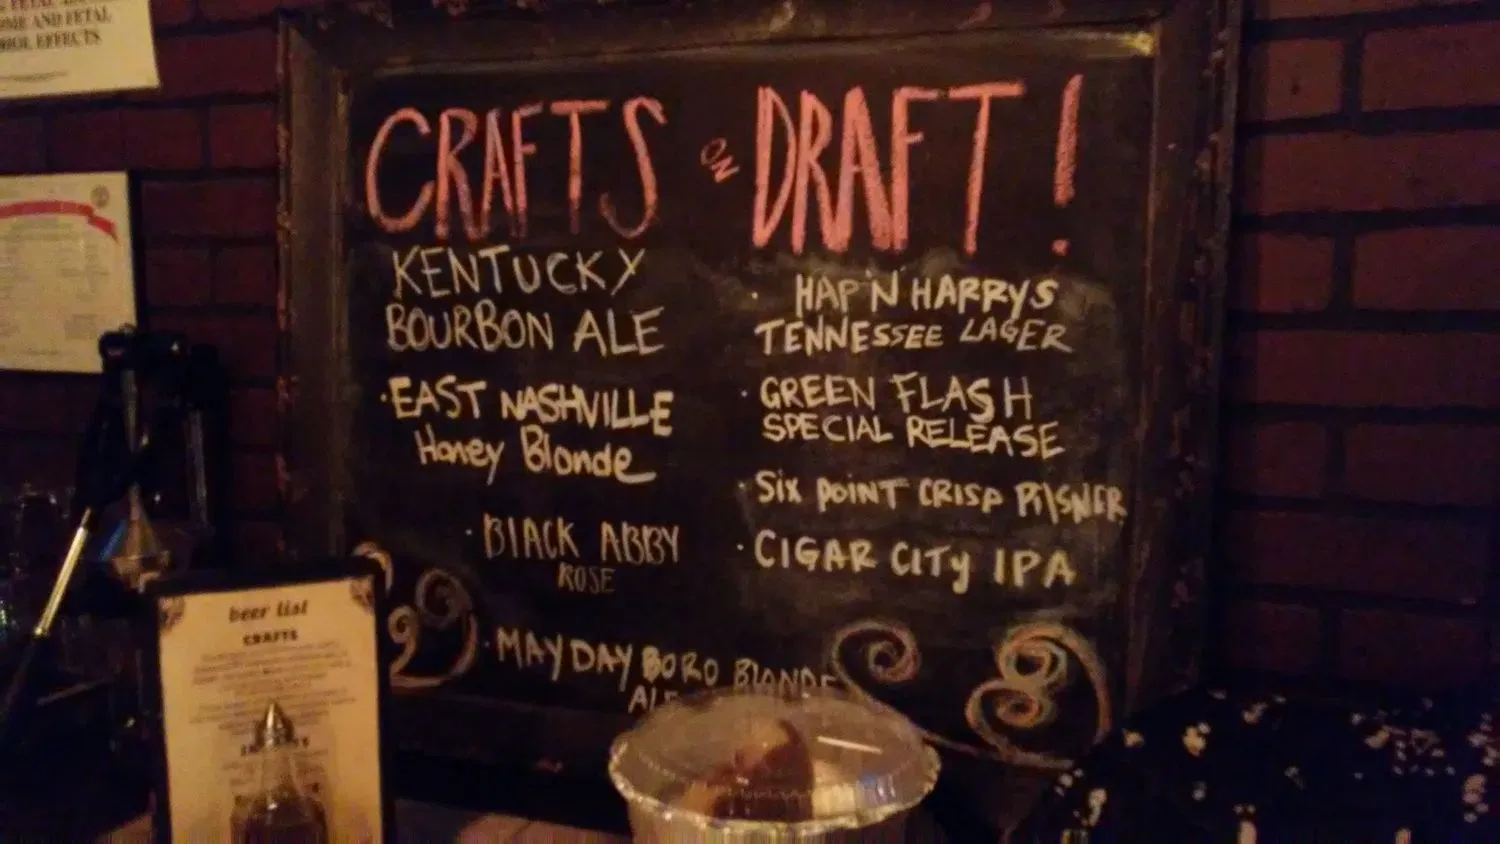 OME AND FETAL
HOL EFFECTS
CRAFTS ON DRAFT!
KENTUCKY
BOURBON ALE
·EAST NASHVILLE
Honey Blonde
·BLACK ABBY
ROSE
·MAYDAY BORO BLONDE
ALE
· HAP'N HARRYS
TENNESSEE LAGER
·GREEN FLASH
SPECIAL RELEASE
·Six POINT CRISP PILSNER
·CIGAR CITY IPA
beer list
CRAFTS